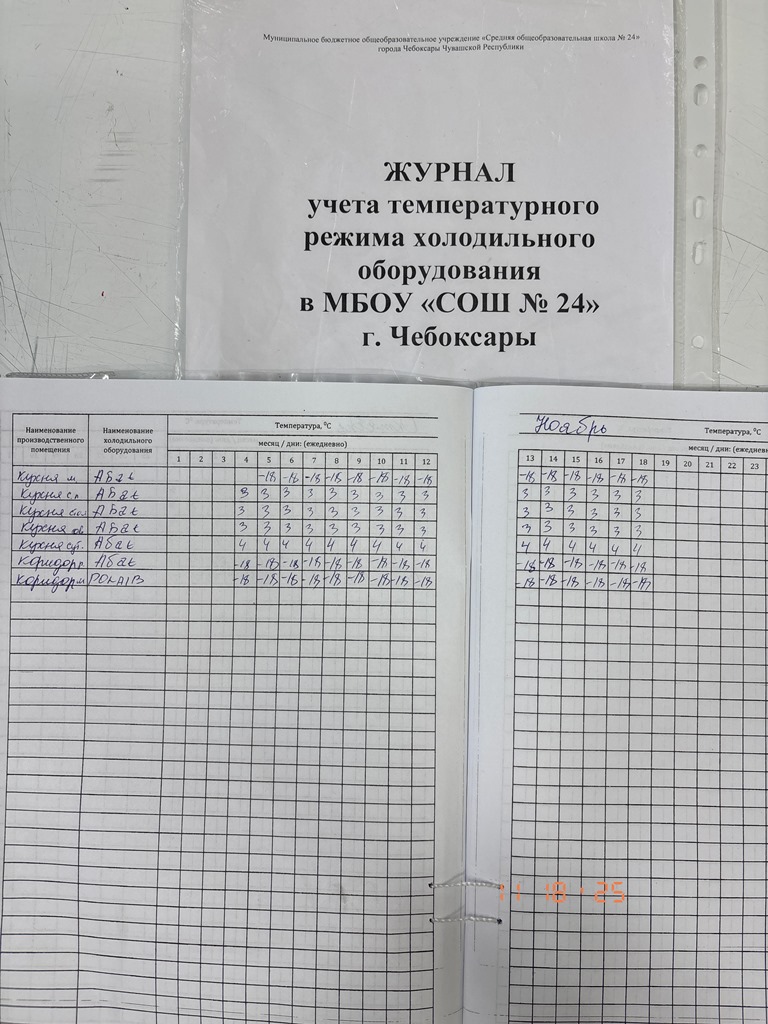 Муниципальное бюджетное общеобразовательное учреждение «Средняя общеобразовательная школа № 24»
города Чебоксары Чувашской Республики
ЖУРНАЛ
учета температурного
режима холодильного
оборудования
в МБОУ «СОШ № 24»
г. Чебоксары
Наименование производственного помещения Наименование холодильного оборудования Температура, ⁰С
месяц / дни: (ежедневно)
1 2 3 4 5 6 7 8 9 10 11 12
Кухня м. Абат -18 -18 -18 -18 -18 -18 -18 -18
Кухня Абат 3 3 3 3 3 3 3 3 3
Кухня Абат 3 3 3 3 3 3 3 3 3
Кухня Абат 3 3 3 3 3 3 3 3 3
Кухня сут. Абат 4 4 4 4 4 4 4 4 4
Коридор Абат -18 -18 -18 -18 -18 -18 -18 -18 -18
Коридор м POLAIR -18 -18 -18 -18 -18 -18 -18 -18 -18
Ноябрь Температура, ⁰С
месяц / дни: (ежедневн
13 14 15 16 17 18 19 20 21 22 23
-18 -18 -18 -18 -18 -18
3 3 3 3 3 3
3 3 3 3 3 3
3 3 3 3 3 3
4 4 4 4 4 4
-18 -18 -18 -18 -18 -18
-18 -18 -18 -18 -18 -18
11 18 '25